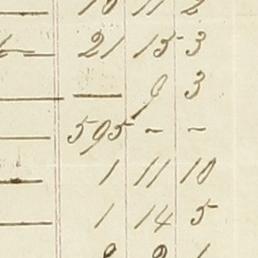 10 11 2
21 15 3
— 9 3
595 - -
1 11 10
1 14 5